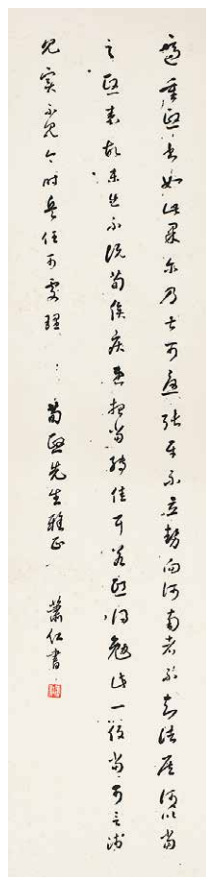 適重熙書如此果尔乃甚可憂張平不立勢向河南者不知諸侯何以當
之熙表故未出不説荀侯疾患想當轉佳耳若熙得勉此一役當可言淺
見實不見今時兵任可處理 熙先生雅正 蕭仁書